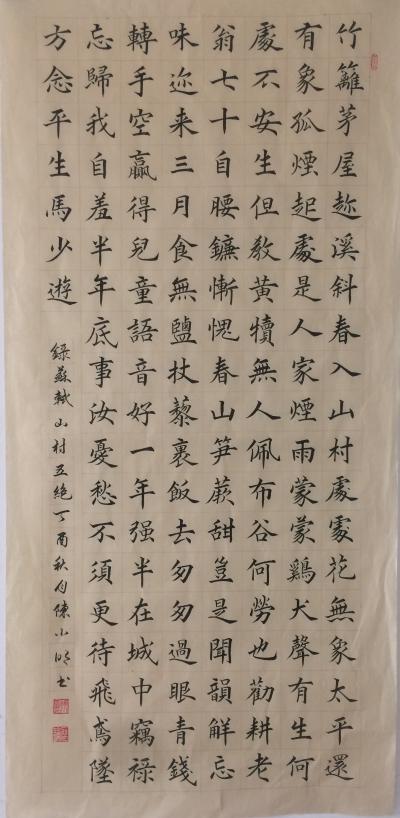 竹籬茅屋趂溪斜春入山村處處花無象太平還
有象孤煙起處是人家煙雨蒙蒙鷄犬聲有生何
處不安生但教黃犢無人佩布谷何勞也勸耕老
翁七十自腰鐮慚愧春山笋蕨甜豈是聞韻解忘
味迩来三月食無鹽杖藜裹飯去匆匆過眼青錢
轉手空贏得兒童語音好一年强半在城中竊祿
忘歸我自羞半年底事汝憂愁不須更待飛鳶墜
方念平生馬少遊
錄蘇軾山村五絶丁酉秋月陳小明书